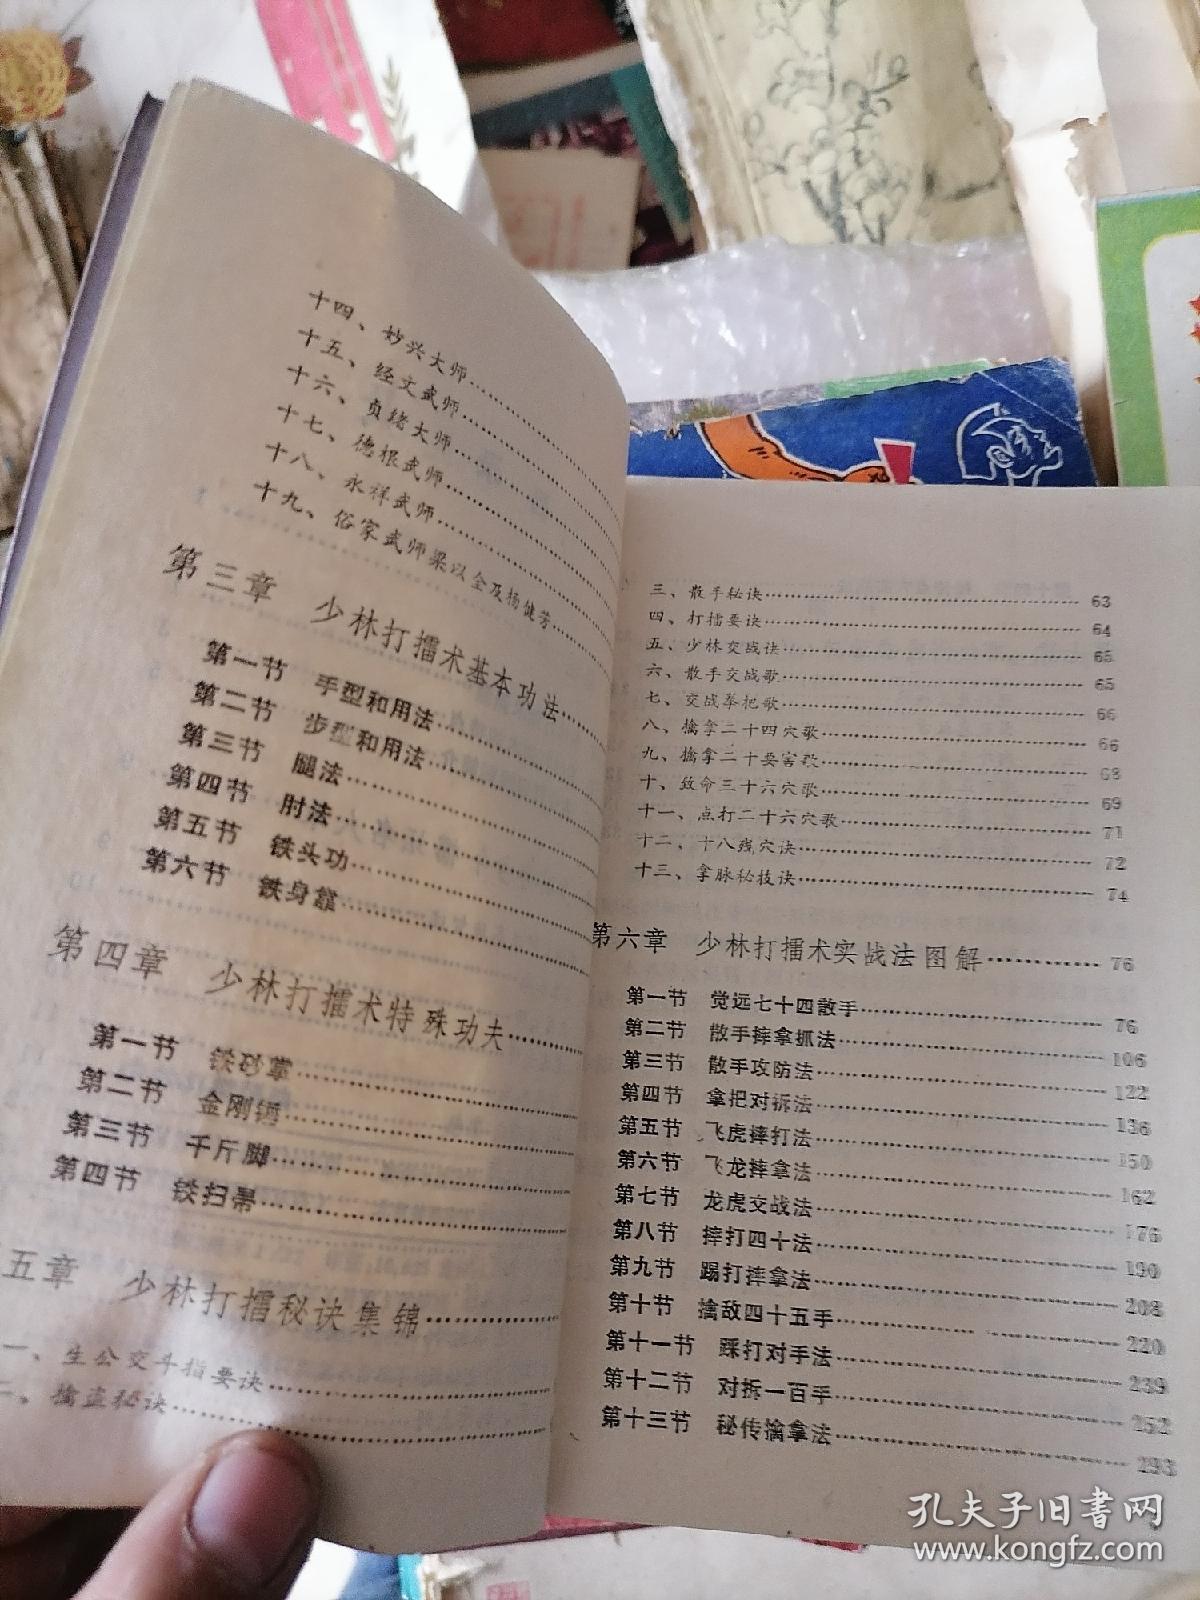 十四、妙兴大师
十五、经文武师
十六、贞绪大师
十七、德根武师
十八、永祥武师
十九、俗家武师梁以全及杨健芳
第三章 少林打擂术基本功法
第一节 手型和用法
第二节 步型和用法
第三节 腿法
第四节 肘法
第五节 铁头功
第六节 铁身靠
第四章 少林打擂术特殊功夫
第一节 铁砂掌
第二节 金刚锤
第三节 千斤脚
第四节 铁扫帚
五章 少林打擂秘诀集锦
一、生公交斗指要诀
二、擒盗秘诀
三、散手秘诀 63
四、打擂要诀 64
五、少林交战诀 65
六、散手交战歌 65
七、交战拳把歌 66
八、擒拿二十四穴歌 66
九、擒拿二十要害歌 68
十、致命三十六穴歌 69
十一、点打二十六穴歌 71
十二、十八残穴诀 72
十三、拿脉秘技诀 74
第六章 少林打擂术实战法图解 76
第一节 觉远七十四散手 76
第二节 散手摔拿抓法 106
第三节 散手攻防法 122
第四节 拿把对拆法 136
第五节 飞虎摔打法 150
第六节 飞龙摔拿法 162
第七节 龙虎交战法 176
第八节 摔打四十法 190
第九节 踢打摔拿法 208
第十节 擒敌四十五手 220
第十一节 踩打对手法 239
第十二节 对拆一百手 252
第十三节 秘传擒拿法 293
孔夫子旧书网
www.kongfz.com